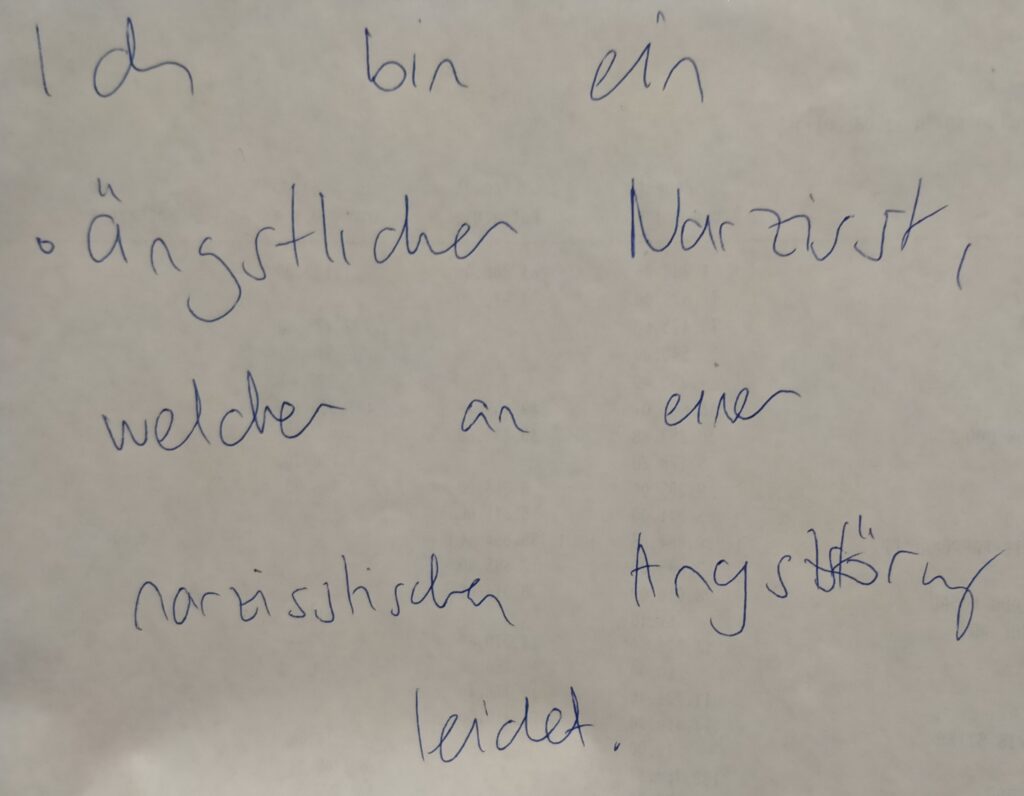 Ich bin ein
ängstlicher Narzisst,
welcher an einer
narzisstischen Angststörung
leidet.